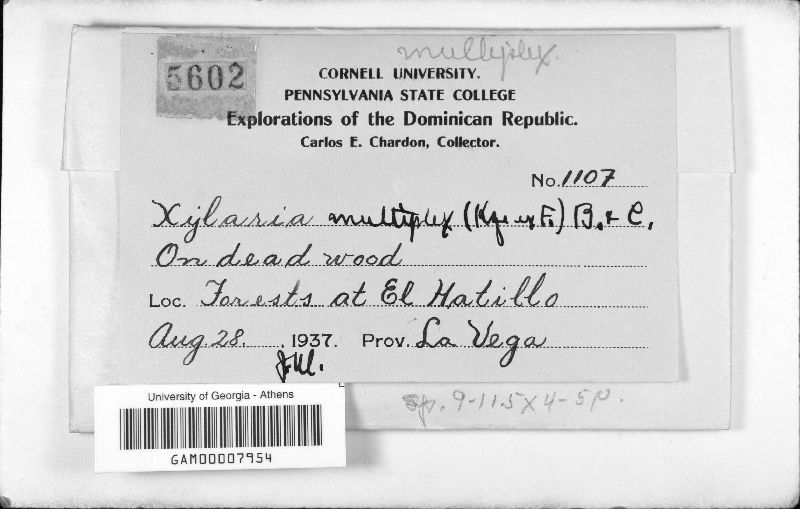 multiplex.
5602
CORNELL UNIVERSITY.
PENNSYLVANIA STATE COLLEGE
Explorations of the Dominican Republic.
Carlos E. Chardon, Collector.
No. 1107
Xylaria multiplex (Kze ex Fr.) B. & C.
On dead wood
Loc. Forests at El Hatillo
Aug. 28. , 1937. Prov. La Vega
University of Georgia - Athens
sp. 9-11.5 x 4-5 µ.
GAM00007954